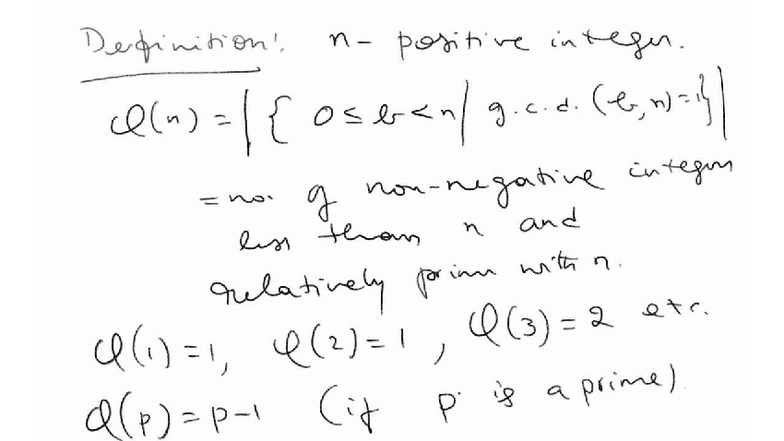 Definition: n- positive integer.
φ(n) = |{ 0 ≤ b < n | g.c.d. (b, n) = 1}|
= no. of non-negative integers
less than n and
relatively prime with n.
φ(1) = 1, φ(2) = 1, φ(3) = 2 etc.
φ(p) = p-1 (if p is a prime)